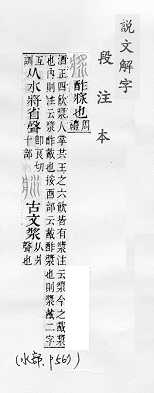 說文解字
段注本
酢漿也周禮
酒正四飲漿人掌共王之六飲皆有漿注云漿今之酨漿
也內則注云漿酢酨也按酉部云酨酢漿也則漿酨二字
互訓从水將省聲卽良切十部古文漿从爿聲也
(水部. P567)